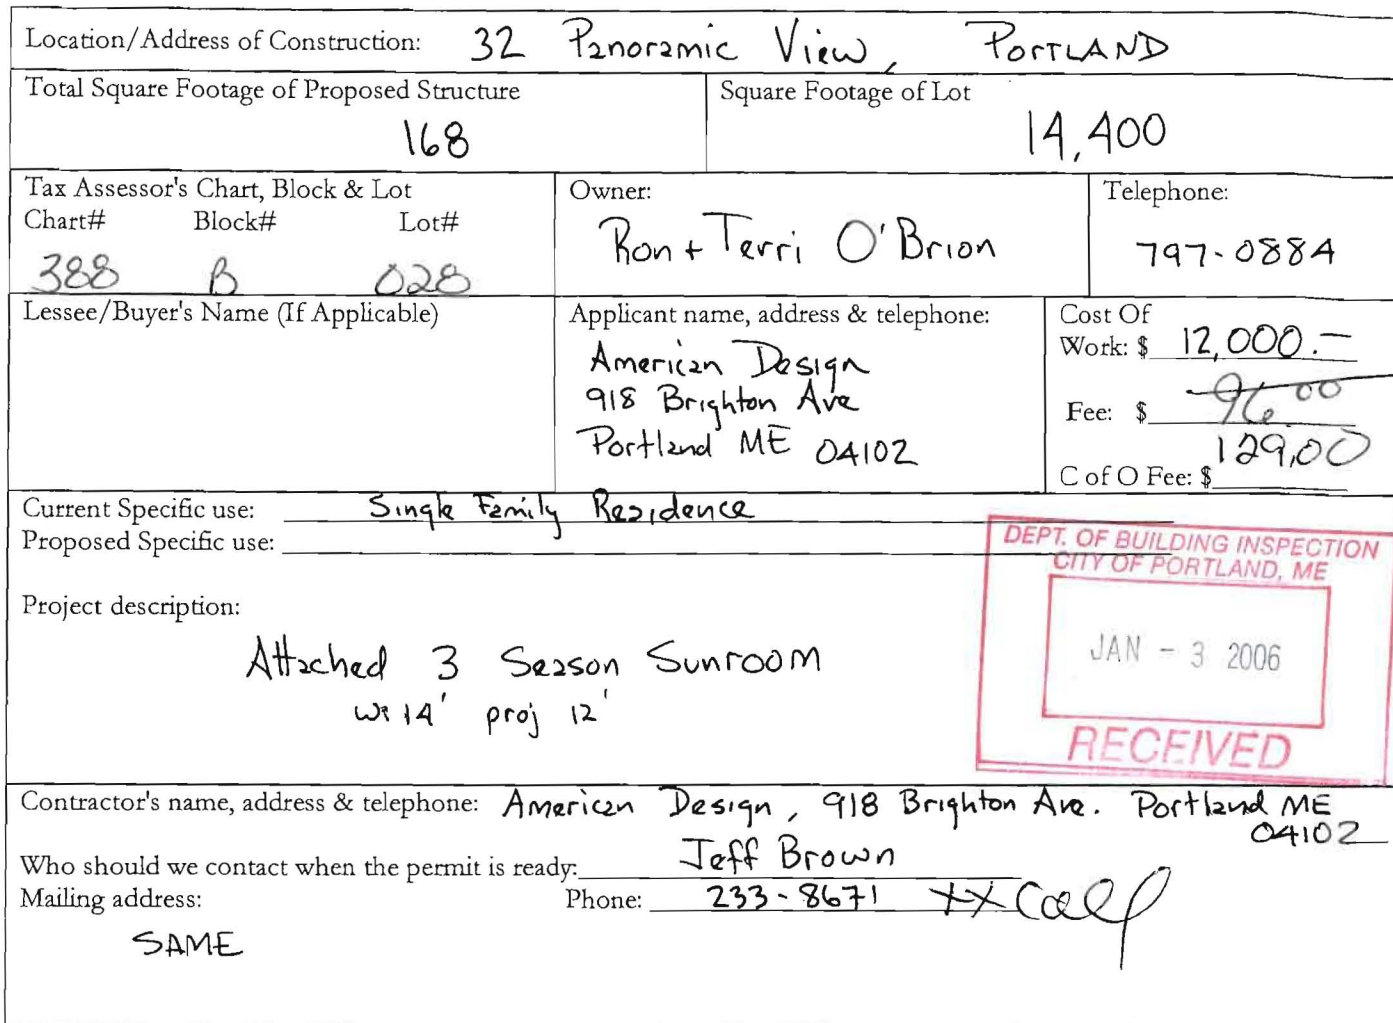 Location/Address of Construction: 32 Panoramic View, PORTLAND
Total Square Footage of Proposed Structure
168
Square Footage of Lot
14,400
Tax Assessor's Chart, Block & Lot
Chart# Block# Lot#
388 B 028
Owner:
Ron + Terri O'Brion
Telephone:
797-0884
Lessee/Buyer's Name (If Applicable)
Applicant name, address & telephone:
American Design
918 Brighton Ave
Portland ME 04102
Cost Of
Work: $ 12,000.—
Fee: $ 96 00
129.00
C of O Fee: $
Current Specific use: Single Family Residence
Proposed Specific use:
DEPT. OF BUILDING INSPECTION
CITY OF PORTLAND, ME
JAN - 3 2006
RECEIVED
Project description:
Attached 3 Season Sunroom
wi 14' proj 12'
Contractor's name, address & telephone: American Design, 918 Brighton Ave. Portland ME
04102
Who should we contact when the permit is ready: Jeff Brown
Mailing address: Phone: 233-8671 xx Call
SAME